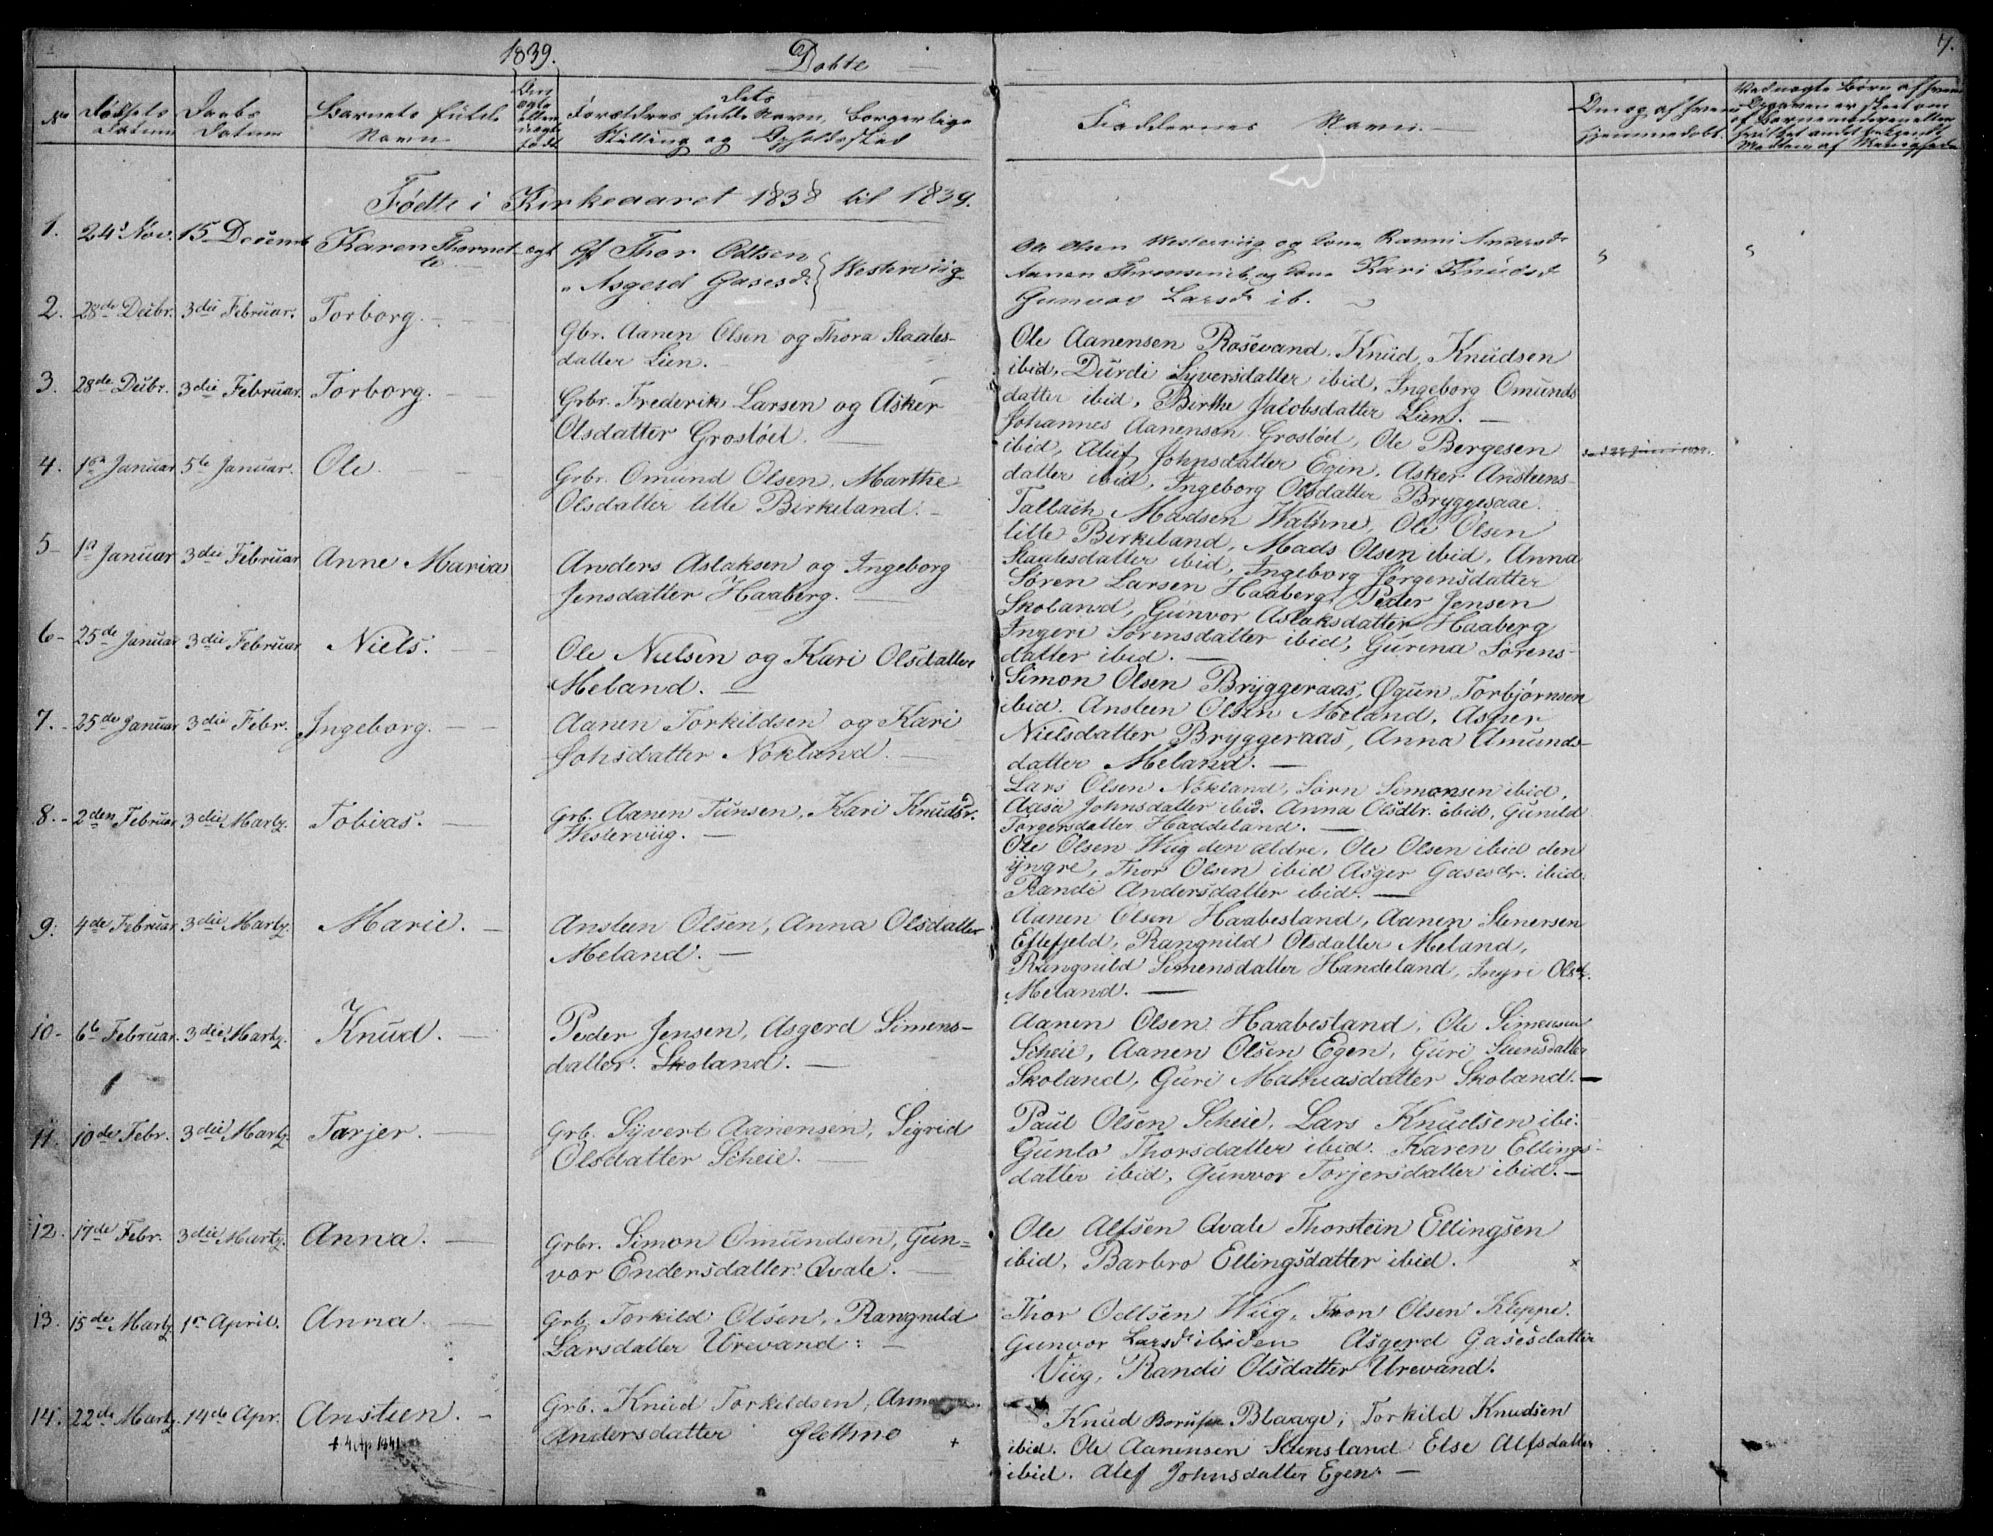 1839. Døbte 7.
No Fødsels Datum Daabs Datum Barnets fulde Navn Om ægte eller uægte født Dets Forældres fulde Navn, borgerlige Stilling og Opholdssted Faddernes Navn. Om og af hvem hjemmedøbt.
Fødte i Kirkeaaret 1838 til 1839.
1. 24de Nov. 15 Decemb Karen Thorine ægt Gf Thor Odtsen
„ Asgerd Gasesdr } Westerviig
Ole Olsen Westerviig og Kone Ranni Andersdr
Aanen Thronsen ib. og Kone Kari Knudsd
Gunvor Larsdr ib.
2. 28de Decbr. 3die Februar. Torborg.
Gbr. Aanen Olsen og Thora Staales-
datter Lien.
Ole Aanensen Rosevand, Knud Knudsen
ibid, Durdi Syversdatter ibid, Ingeborg Omunds
datter ibid, Birthe Jacobsdatter Lien.
3. 28de Decbr. 3die Februar. Torborg.
Grbr. Frederik Larsen og Asker
Olsdatter Grosløet.
Johannes Aanensen Grosløet, Ole Bergesen
ibid, Aluf Johnsdatter Egen, Asker Ansteens-
datter ibid, Ingeborg Olsdatter Bryggesaae.
4. 1ste Januar 5te Januar. Ole.
Grbr. Omund Olsen, Marthe
Olsdatter lille Birkeland.
Tallach Madsen Wathne, Ole Olsen
lille Birkeland, Mads Olsen ibid, Anna
Staalesdatter ibid, Ingeborg Jørgensdatter
5 1st Januar 3die Februar Anne Maria
Anders Aslaksen og Ingeborg
Jensdatter Haaberg.
Søren Larsen Haaberg, Peder Jensen
Skoland, Gunvor Aslaksdatter Haaberg
Ingeri Sørensdatter ibid, Gurina Sørens-
datter ibid.
6 25de Januar 3die Februar Niels.
Ole Nielsen og Kari Olsdatter
Meland.
Simon Olsen Bryggeraas, Øgun Torbjørnsen
ibid. Ansteen Olsen Meland, Asper
Nielsdatter Bryggeraas, Anna Amunds-
datter Meland.
7. 25de Januar 3die Febr. Ingeborg.
Aanen Torkildsen og Kari
Johsdatter Nökland.
Lars Olsen Nökland, Sørn Simonsen ibid,
Aasa Johnsdatter ibid. Anna Olsdtr. ibid, Gunild
Torgersdatter Haddeland.
8. 2den Februar 3die Martz. Tobias.
Grb. Aanen Tunsen, Kari Knudsdr.
Westerviig.
Ole Olsen Wiig den ældre, Ole Olsen ibid den
yngre, Thor Olsen ibid Asger Gasesdr. ibid.
Randi Andersdatter ibid.
9. 4de Februar 3die Martz. Marie.
Ansteen Olsen, Anna Olsdatter
Meland.
Aanen Olsen Haabesland, Aanen Stenersen
Eftefjeld, Rangnild Olsdatter Meland,
Rangnild Simensdatter Handeland, Ingri Olsdr.
Meland.
10 6te Februar. 3die Martz. Knud.
Peder Jensen, Asgerd Simens-
datter. Skoland.
Aanen Olsen Haabesland, Ole Simensen
Scheie, Aanen Olsen Egen, Guri Stensdatter
Skoland, Guri Mathiasdatter Skoland.
11. 10de Febr. 3die Martz. Tarjer.
Grb. Syvert Aanensen, Sigrid
Olsdatter Scheie.
Paul Olsen Scheie, Lars Knudsen ibi.
Gunlo Thorsdatter ibid. Karen Ellings-
datter ibid, Gunvor Torjersdatter ibid.
12. 17de Febr. 3die Martz. Anna.
Grbr. Simon Omundsen, Gun=
vor Endersdatter Qvale.
Ole Alfsen Qvale Thorstein Ellingsen
ibid, Barbro Ellingsdatter ibid. x
13. 15de Martz 1st April. Anna.
Grb. Torkild Olsen, Rangnild
Larsdatter Urevand:
Thor Odtsen Wiig, Tron Olsen Kleppe.
Gunvor Larsdr ibiden Asgerd Gasesdatter
Viig, Randi Olsdatter Urevand.
14. 22de Martz 14de Apr. Anstien.
+ 4 Ap 1841
Grb. Knud Torkildsen, Anna
Andersdatter Glethne +
Knud Blaage, Torkild Knudsen
ibid. Ole Aanensen Stensland Else Alfsdatter
ibid. Alef Johnsdatter Egen.